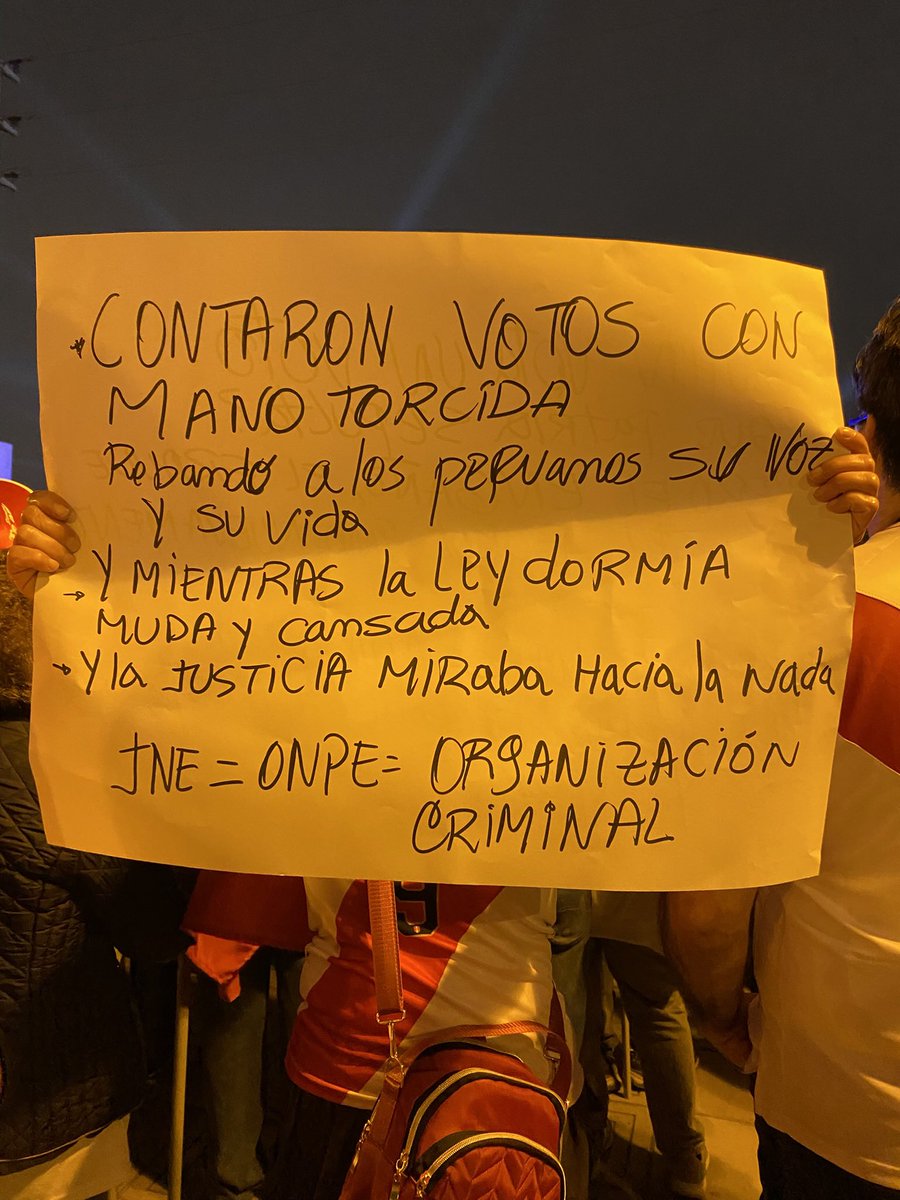 * CONTARON VOTOS CON
MANO TORCIDA
Robando a los peruanos su voz
Y su vida
→ Y MIENTRAS la LEY dORMÍA
MUDA y cansada
→ Y la JUSTICIA MIRaba Hacia la Nada
JNE = ONPE = ORGANIZACIÓN
CRIMINAL
9